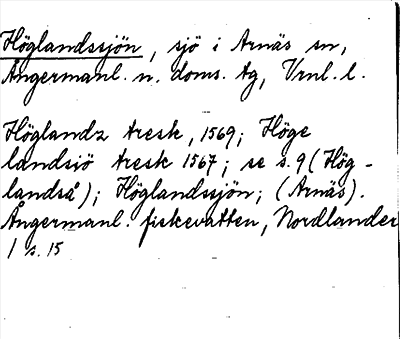 Höglandssjön, sjö i Arnäs sn,
Ångermanl. n. doms. tg, Vrnl. l.
Höglandz tresk, 1569; Höge
landsiö tresk 1567; se s. 9 (Hög-
landså); Höglandssjön; (Arnäs).
Ångermanl. fiskevatten, Nordlander
1 s. 15